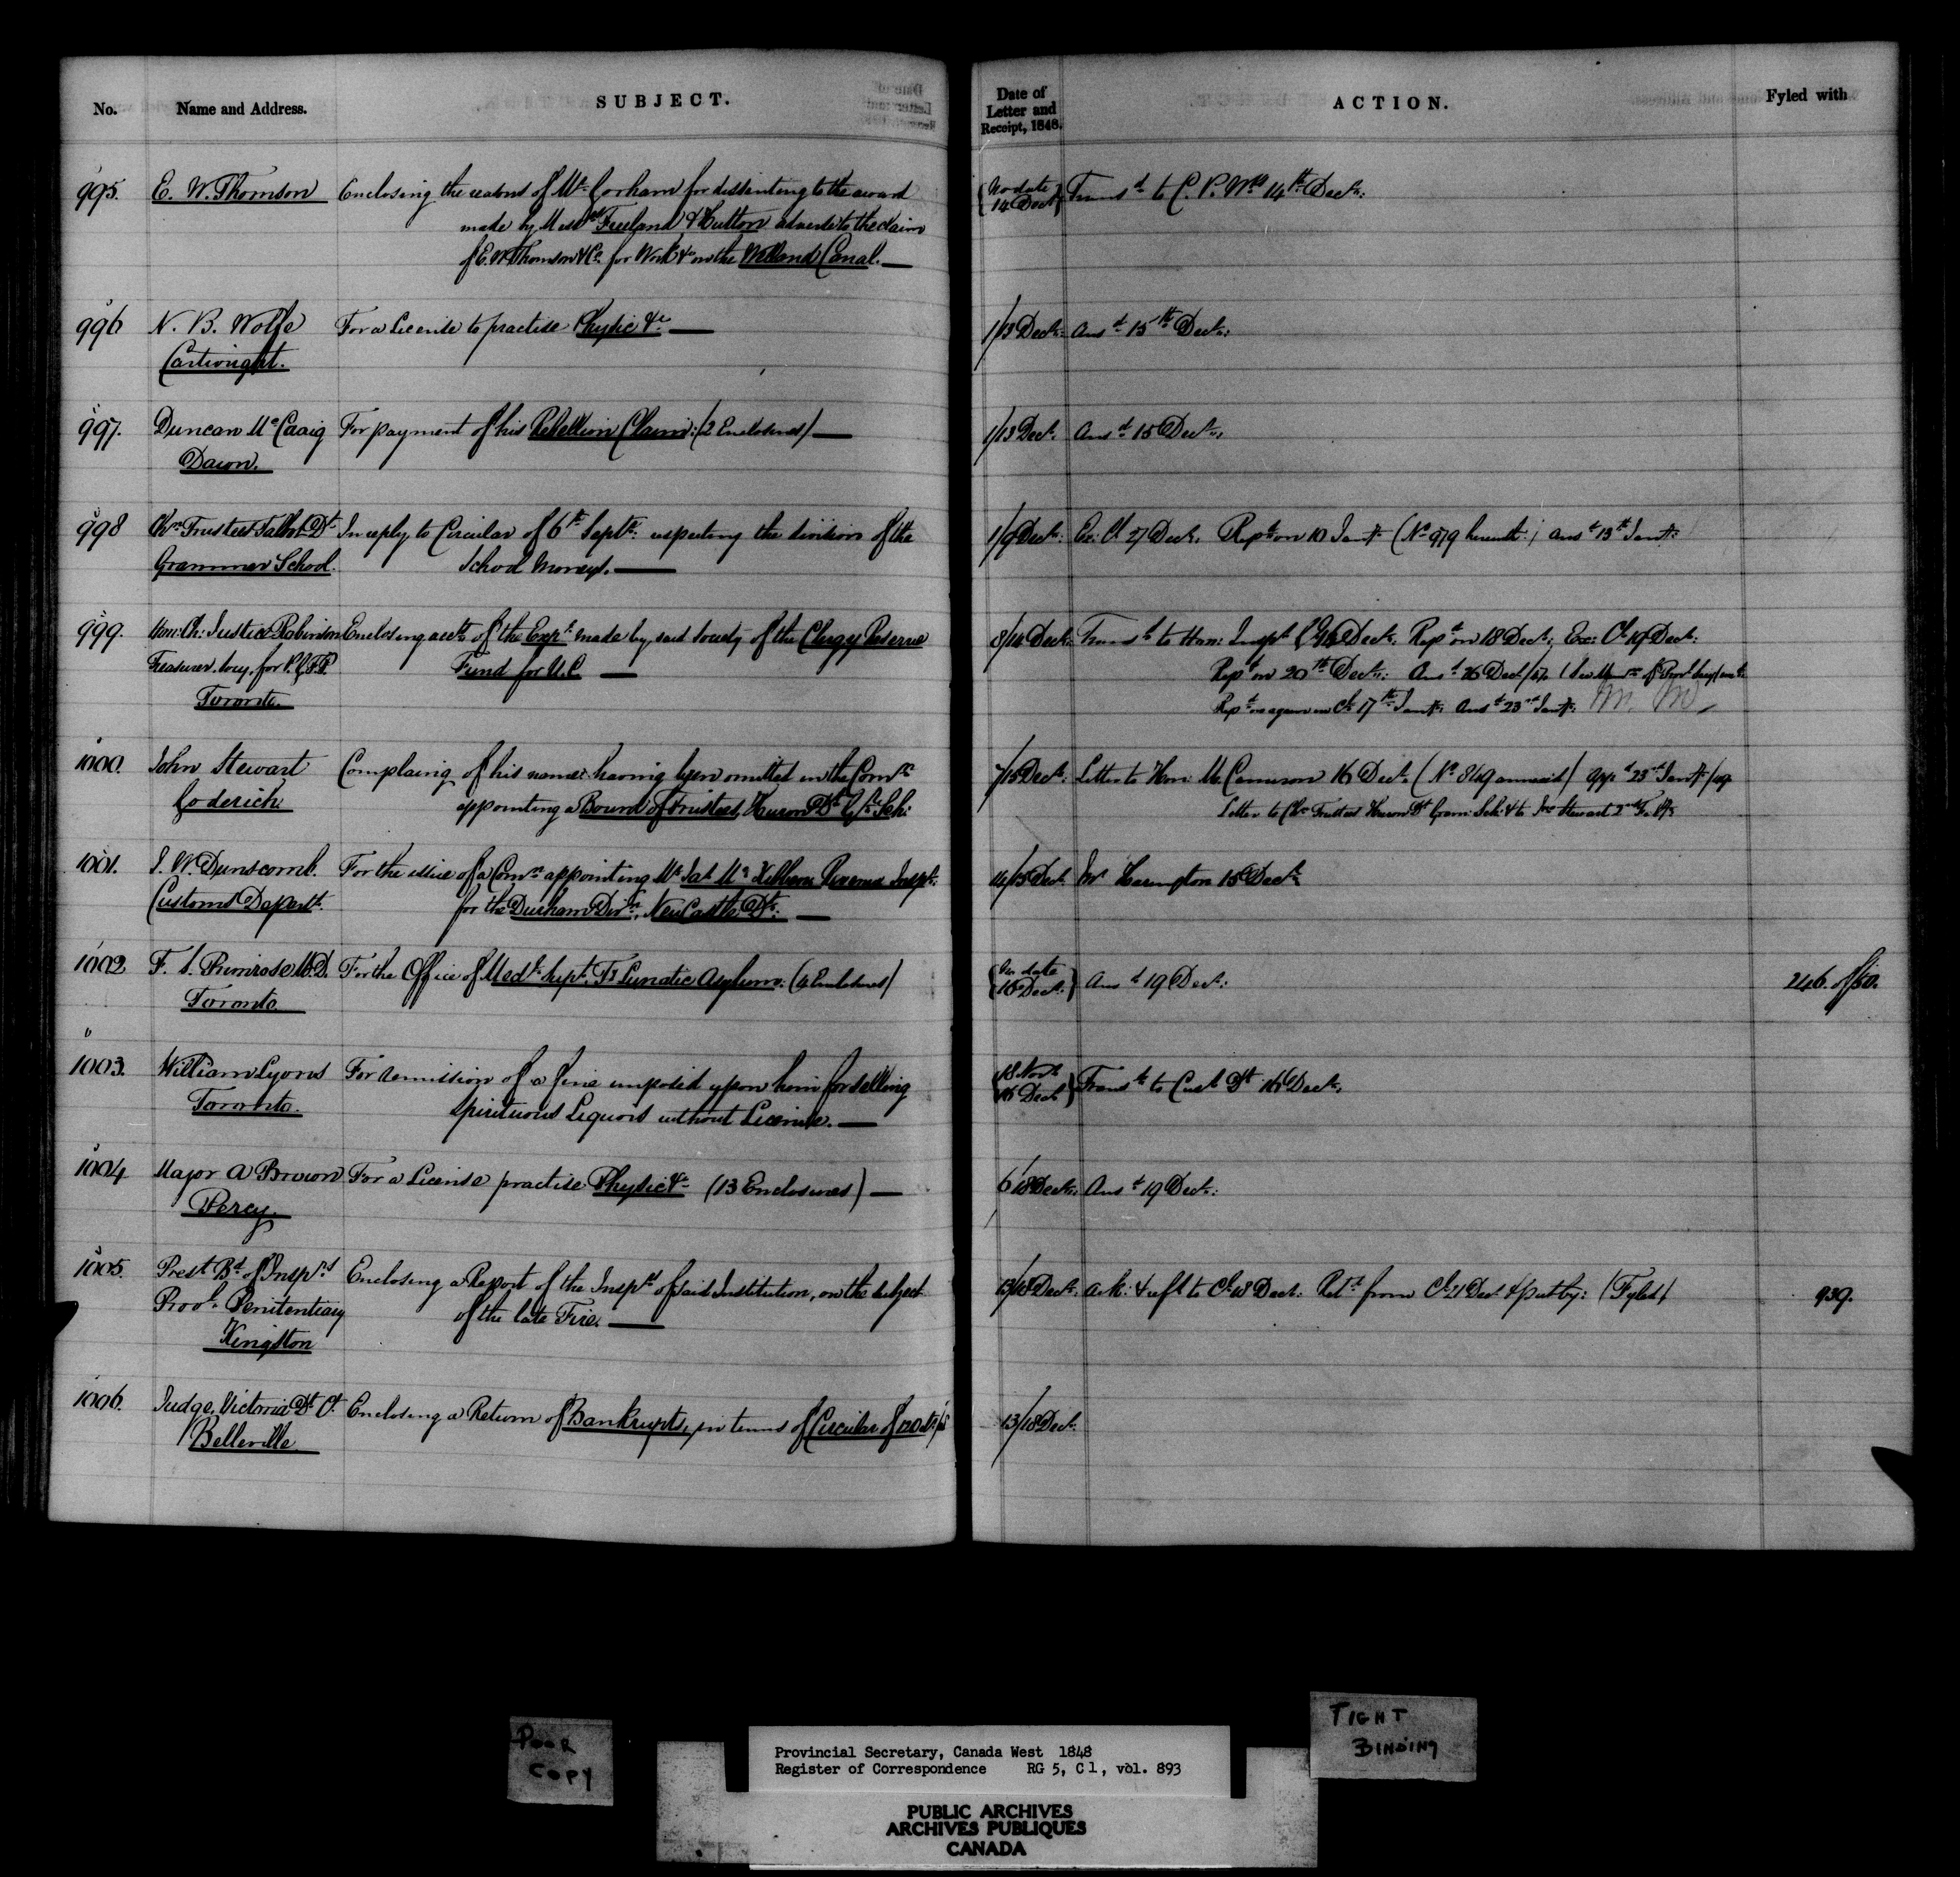 No. Name and Address. SUBJECT. Date of Letter and Receipt, 1848. ACTION. Fyled with
995. E. W. Thomson Enclosing the reasons of Mr. Gorham for dissenting to the award {No date 14 Dect} Transd to C. P. Wks 14th Decr:
made by Messrs Freeland & Hutton adverse to the claim
of E. W. Thomson & Co. for Work &c on the Welland Canal. —
996 N. B. Wolfe For a License to practise Physic &c — 1/13 Decr: Ansd 15th Decr:
Cartwright.
997. Duncan McCraig For payment of his Rebellion Claim: (2 Enclosures) — 1/13 Decr. Ansd 15 Decr:
Dawn.
998 Chn Trustees Talbot Dt In reply to Circular of 6th Septr: respecting the division of the 1/9 Decr: Ex: Cl 27 Decr. Repd on 10 Jany (No 979 herewith) ansd 13th Jany:
Grammar School. School Moneys. —
999. Hon: Ch: Justice Robinson Enclosing acct of the Expe made by said Society of the Clergy Reserve 8/14 Decr: Transd to Hon: Inspr Gl 14 Decr. Repd on 18 Decr; Exe: Cl 19 Decr:
Treasurer, Socy. for P. G. F. P. Fund for U.C. — Repd on 20th Decr: Ansd 26 Decr
Toronto. Repd on again in Cl 17th Jany: Ansd 23rd Jany.
1000. John Stewart Complaing of his name having been omitted in the Comn 7/15 Decr: Letter to Hon: M. Cameron 16 Decr. (No 849 annexed) App'd 23rd Jany/49
Goderich. appointing a Board of Trustees, Huron Dt Gr. Sch: Letter to Chn Trustees Huron Dt Gram: Sch: & to Jno Stewart 2nd Feby
1001. J. W. Dunscomb. For the issue of a Comn appointing Mr Jas Mc Kibbon Revenue Inspr: 14/15 Decr. Mr Harington 15 Decr
Customs Departt. for the Durham Divn, New Castle Dt: —
1002 F. S. Primrose M.D. For the Office of Medl Supt. Ty Lunatic Asylum: (4 Enclosures) {No date 16 Decr:} Ansd 19 Decr: 246. of/50.
Toronto.
1003. William Lyons For remission of a fine imposed upon him for selling {18 Novr 16 Decr} Transd to Cust Dt 16 Decr.
Toronto. Spirituous Liquors without License. —
1004 Major A Brown For a License practise Physic &c (13 Enclosures) — 6/18 Decr: Ansd 19 Decr:
Percy.
1005. Prest Bd of Insprs Enclosing a Report of the Insprs of said Institution, on the subject 13/18 Decr: Ack: & refd to Cl 18 Decr: Retd from Cl 21 Decr & put by: (Fyled) 939.
Provl. Penitentiary of the late Fire. —
Kingston
1006. Judge, Victoria Dt Ct. Enclosing a Return of Bankrupts, in terms of Circular of 13/18 Decr.
Belleville
POOR
COPY
TIGHT
BINDING
Provincial Secretary, Canada West 1848
Register of Correspondence RG 5, C 1, vol. 893
PUBLIC ARCHIVES
ARCHIVES PUBLIQUES
CANADA